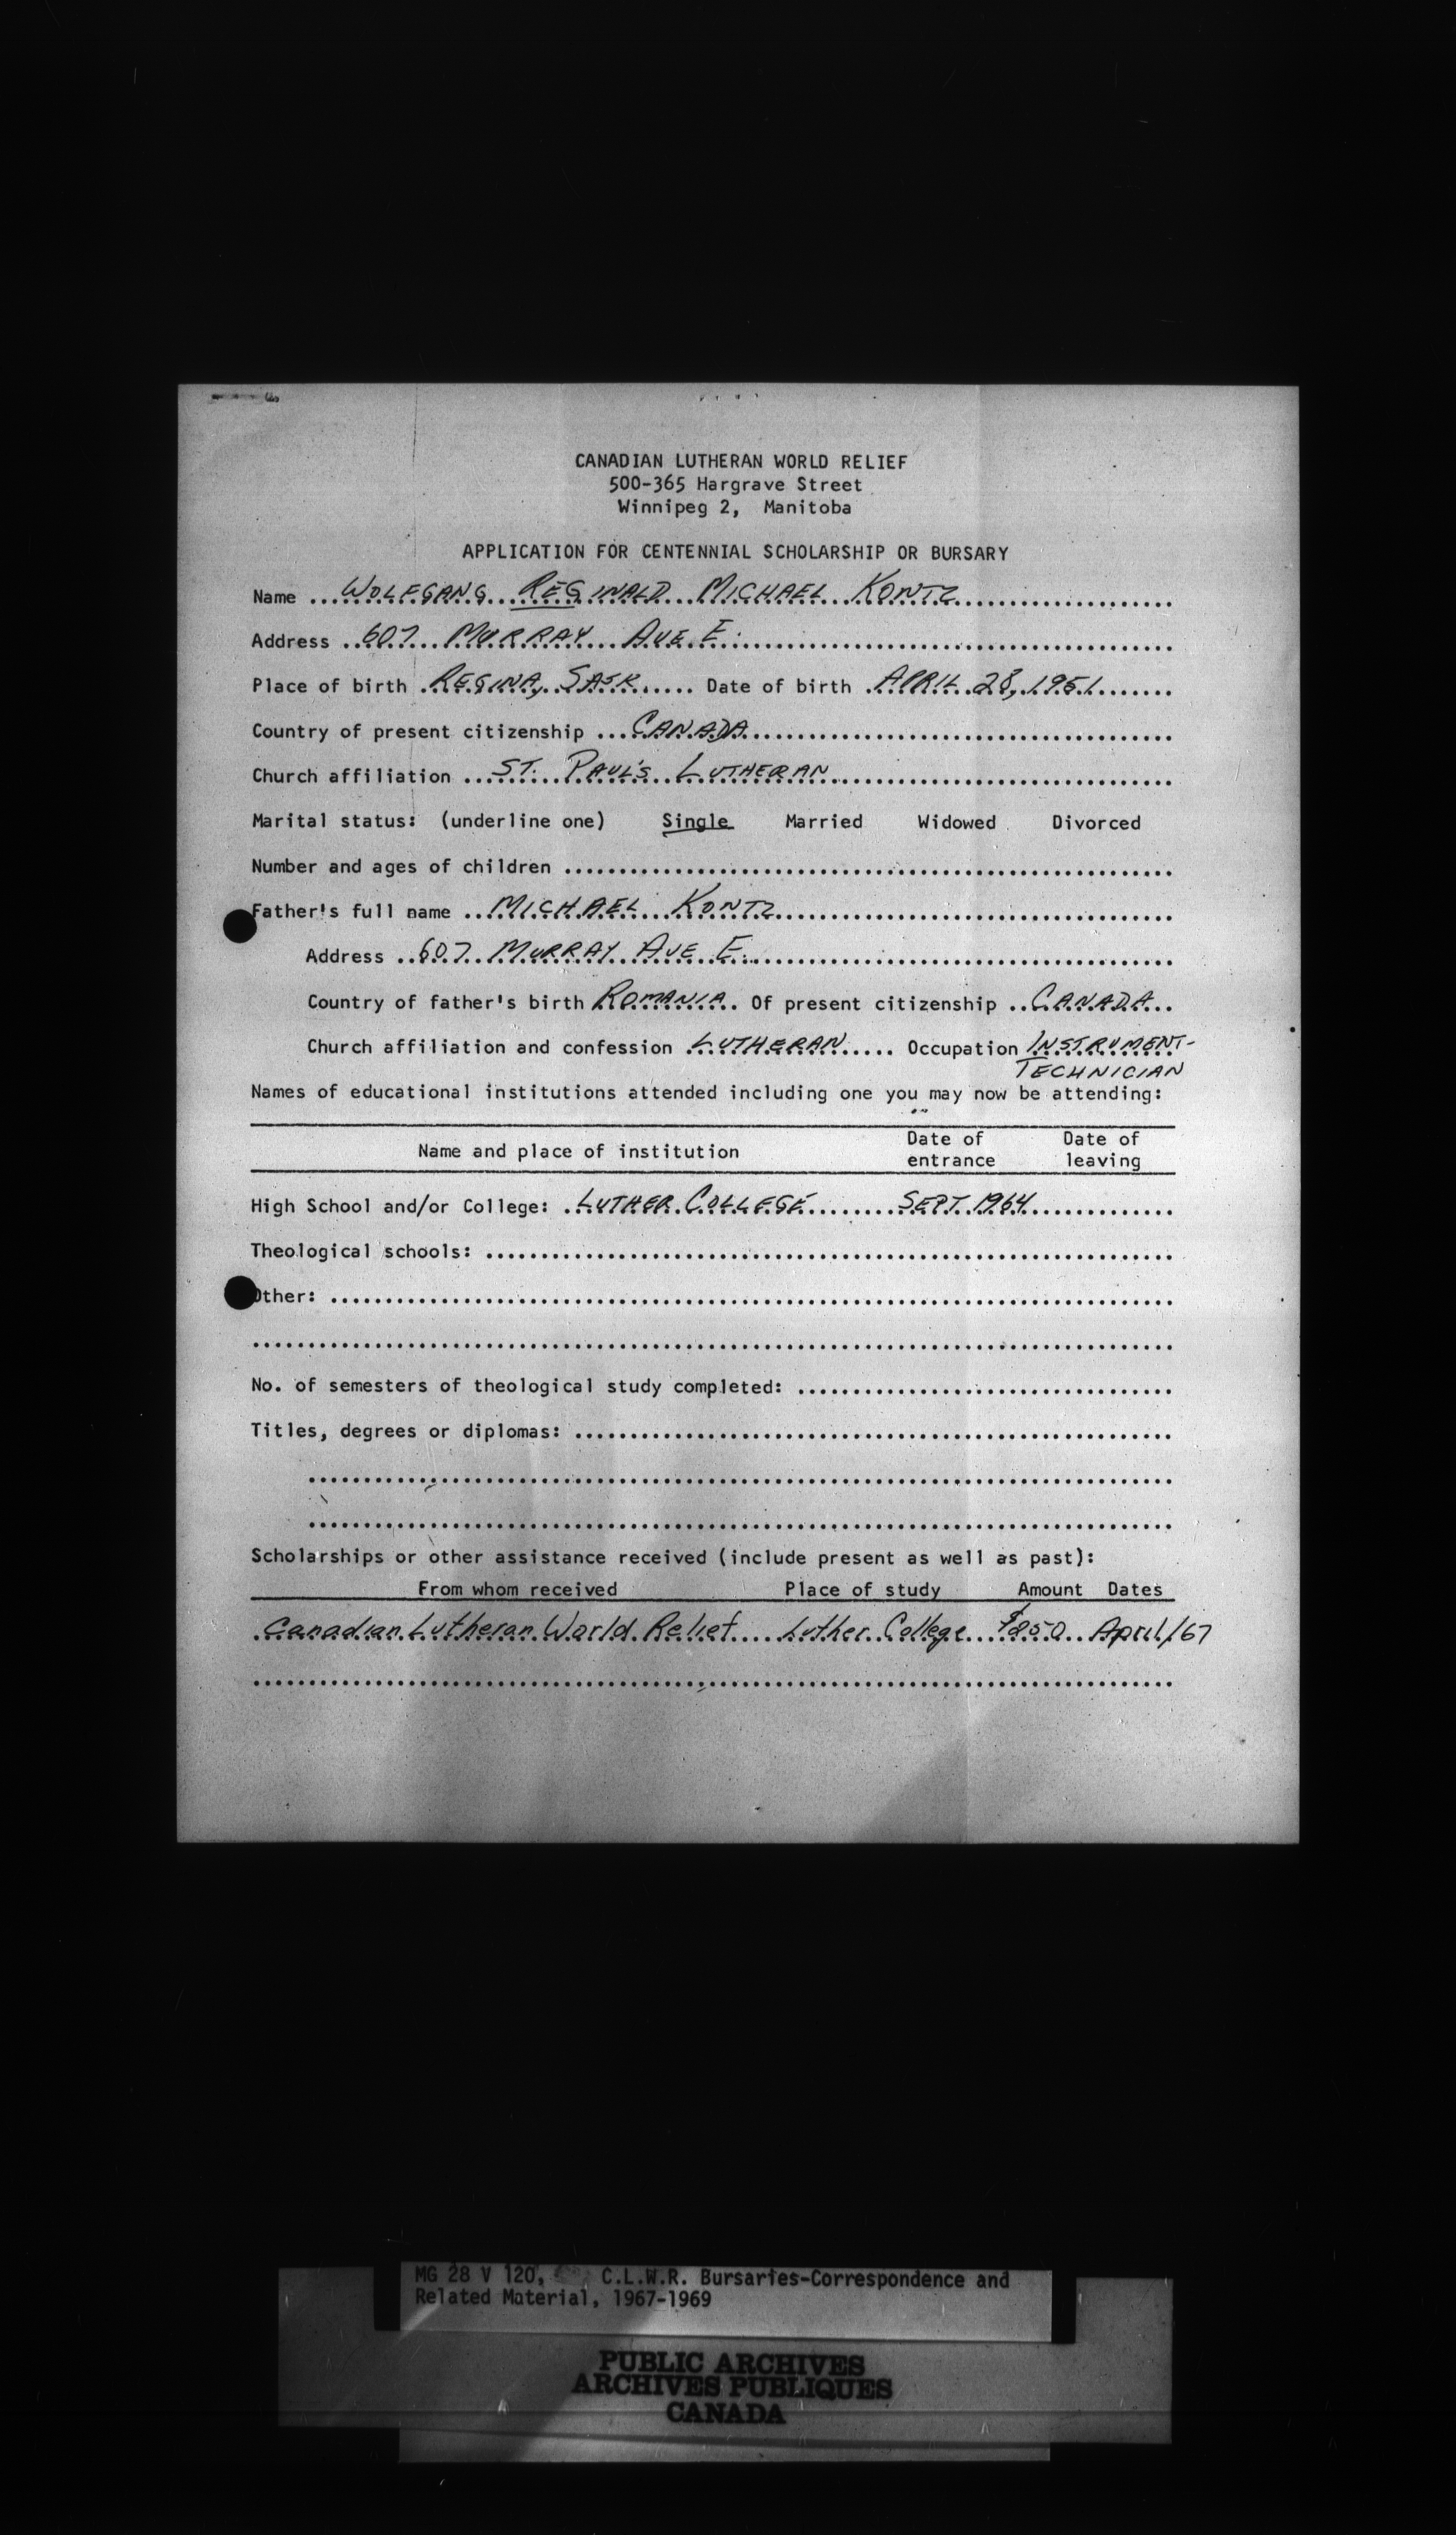 CANADIAN LUTHERAN WORLD RELIEF
500-365 Hargrave Street
Winnipeg 2, Manitoba
APPLICATION FOR CENTENNIAL SCHOLARSHIP OR BURSARY
Name ... WOLFGANG REGINALD MICHAEL KONTZ
Address .. 607 MURRAY AVE E.
Place of birth . REGINA, SASK. .... Date of birth . APRIL 28, 1951
Country of present citizenship ... CANADA
Church affiliation ... ST. PAUL'S LUTHERAN
Marital status: (underline one) Single Married Widowed Divorced
Number and ages of children ...
Father's full name ... MICHAEL KONTZ
Address .. 607 MURRAY AVE E.
Country of father's birth ROMANIA. Of present citizenship .. CANADA..
Church affiliation and confession . LUTHERAN .... Occupation INSTRUMENT-
TECHNICIAN
Names of educational institutions attended including one you may now be attending:
Name and place of institution Date of entrance Date of leaving
High School and/or College: . LUTHER COLLEGE ...... SEPT. 1964
Theological schools: ...
Other: ...
No. of semesters of theological study completed: ...
Titles, degrees or diplomas: ...
Scholarships or other assistance received (include present as well as past):
From whom received Place of study Amount Dates
Canadian Lutheran World Relief .... Luther College ... April/67
MG 28 V 120, C.L.W.R. Bursaries-Correspondence and
Related Material, 1967-1969
PUBLIC ARCHIVES
ARCHIVES PUBLIQUES
CANADA